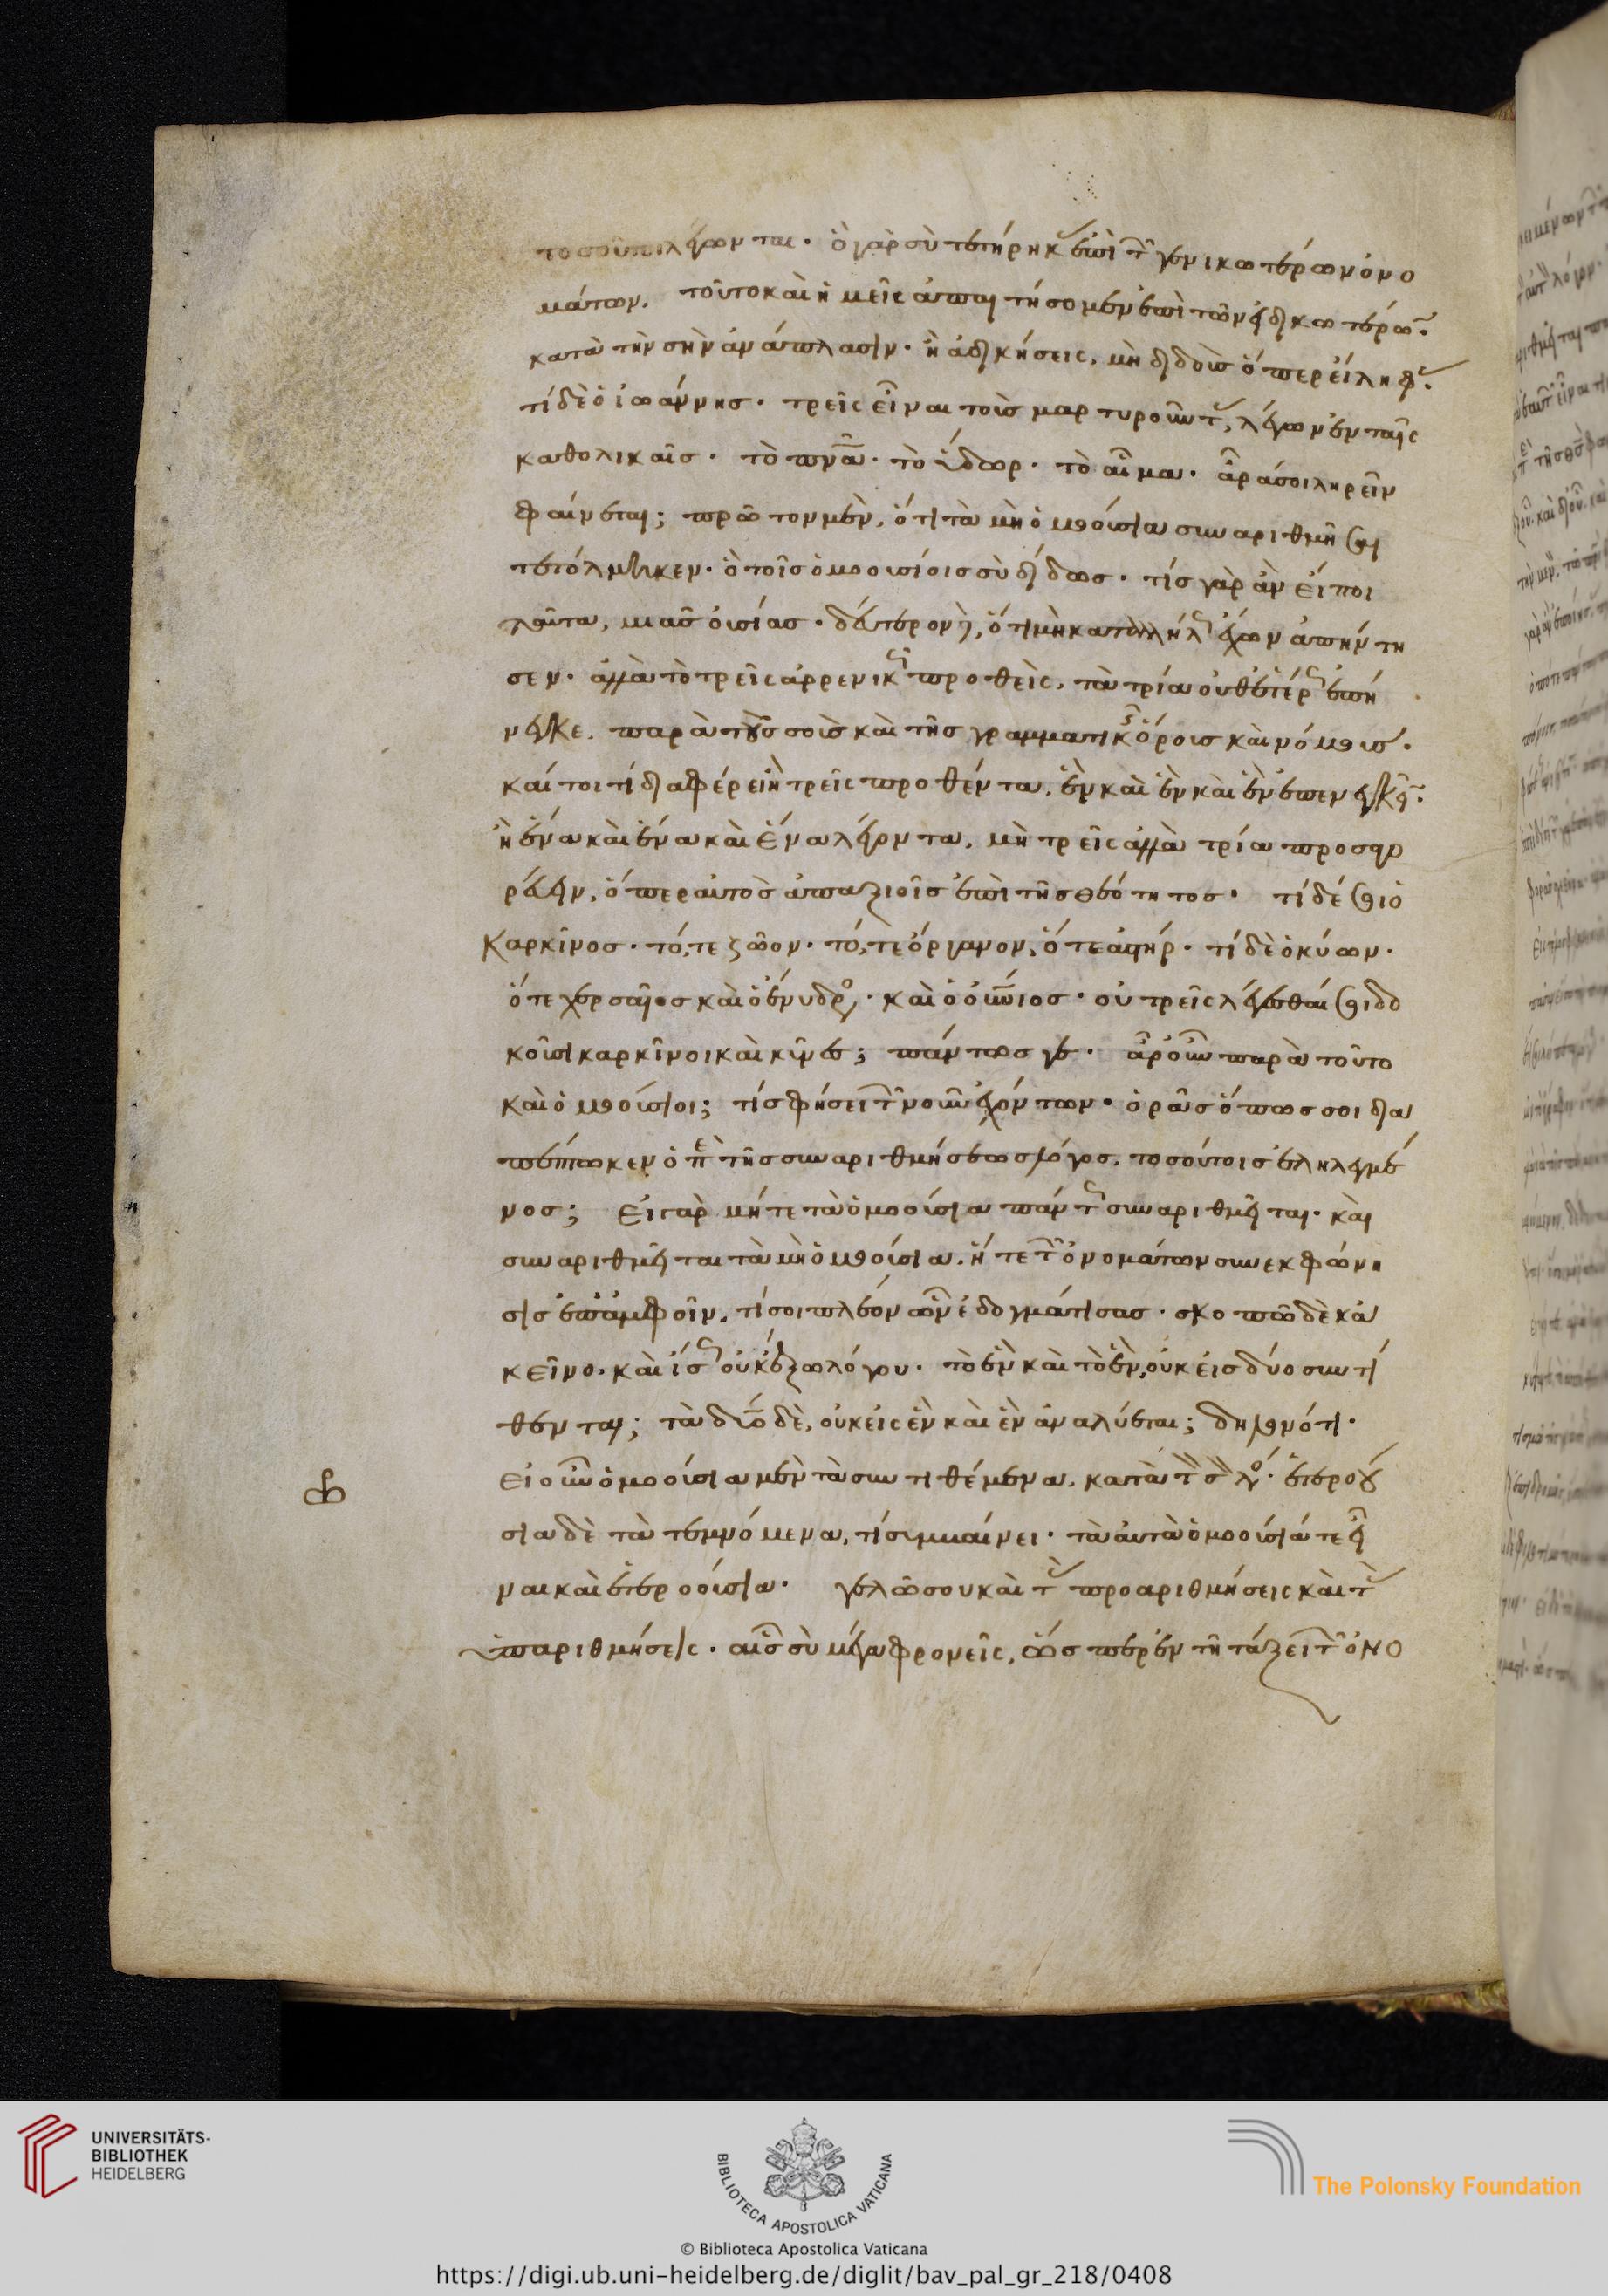 το σοῦπιλέγωνται· ὃ γὰρ σὺ τετήρηκας ἐπὶ τῶν γενικωτέρων ὀνο
μάτων. τοῦτο καὶ ἡμεῖς ἀπαιτήσομεν ἐπὶ τῶν εἰδικωτέρων
κατὰ τὴν σὴν ἀνάπλασιν· ἢ ἀδικήσεις, μὴ διδοὺς ὅπερ εἴληφας.
τί δὲ ὁ ἰωάννης· τρεῖς εἶναι τοὺς μαρτυροῦντας, λέγων ἐν ταῖς
καθολικαῖς· τὸ πνα· τὸ ὕδωρ· τὸ αἷμα· ἆρά σοι ληρεῖν
φαίνεται; πρῶτον μὲν, ὅτι τὰ μὴ ὁμοούσια συναριθμῆσαι
τετόλμηκεν· ὃ τοῖς ὁμοουσίοις σὺ δίδως· τίς γὰρ ἂν εἴποι
ταῦτα, μιᾶς οὐσίας· δεύτερον δὲ, ὅτι μὴ καταλλήλως ἔχων ἀπήντη
σεν· ἀλλὰ τὸ τρεῖς ἀρρενικῶς προθεὶς, τὰ τρία οὐδετέρως ἐπή
νεγκε. παρὰ τοὺς σοὺς καὶ τῆς γραμματικῆς ὅρους καὶ νόμους.
καίτοι τί διαφέρει ἢ τρεῖς προθέντα, ἓν καὶ ἓν καὶ ἓν ἐπενεγκεῖν·
ἢ ἕνα καὶ ἕνα καὶ ἕνα λέγοντα, μὴ τρεῖς ἀλλὰ τρία προσαγο
ρεύειν, ὅπερ αὐτὸς ἀπαξιοῖς ἐπὶ τῆς θεότητος· τί δέ σοι ὁ
Καρκῖνος· τό, τε ζῶον· τό, τε ὄργανον, ὅ τε ἀστήρ· τί δὲ ὁ κύων·
ὅ τε χερσαῖος καὶ ὁ ἔνυδρος· καὶ ὁ οὐράνιος· οὐ τρεῖς λέγεσθαί σοι δο
κοῦσι καρκῖνοι καὶ κύνες; πάντως γε· ἆρ' οὖν παρὰ τοῦτο
καὶ ὁμοούσιοι; τίς φήσει τῶν νοῦν ἐχόντων· ὁρᾷς ὅπως σοι δια
πέπτωκεν ὁ περὶ τῆς συναριθμήσεως λόγος, τοσούτοις ἐληλεγμέ
νος; Εἰ γὰρ μήτε τὰ ὁμοούσια πάντως συναριθμεῖται· καὶ
συναριθμεῖται τὰ μὴ ὁμοούσια. ἥ τε τῶν ὀνομάτων συνεκφώνη
σις ἐπ' ἀμφοῖν, τί σοι πλέον ὧν ἐδογμάτισας· σκοπῶ δὲ κἀ
κεῖνο· καὶ ἴσως οὐκ ἔξω λόγου· τὸ ἓν καὶ τὸ ἓν, οὐκ εἰς δύο συντί
θενται; τὰ δύο δὲ, οὐκ εἰς ἓν καὶ ἓν ἀναλύεται; δηλονότι·
Εἰ οὖν ὁμοούσια μὲν τὰ συντιθέμενα, κατὰ τὸν σὸν λόγον· ἑτεροού
σια δὲ τὰ τεμνόμενα, τί συμβαίνει· τὰ αὐτὰ ὁμοούσιά τε εἶ
ναι καὶ ἑτεροούσια· γελῶ σου καὶ τὰς προαριθμήσεις καὶ τὰς
ὑπαριθμήσεις· αἷς σὺ μέγα φρονεῖς, ὥσπερ ἐν τῇ τάξει τῶν ὀνο
UNIVERSITÄTS-
BIBLIOTHEK
HEIDELBERG
BIBLIOTECA APOSTOLICA VATICANA
The Polonsky Foundation
© Biblioteca Apostolica Vaticana
https://digi.ub.uni-heidelberg.de/diglit/bav_pal_gr_218/0408